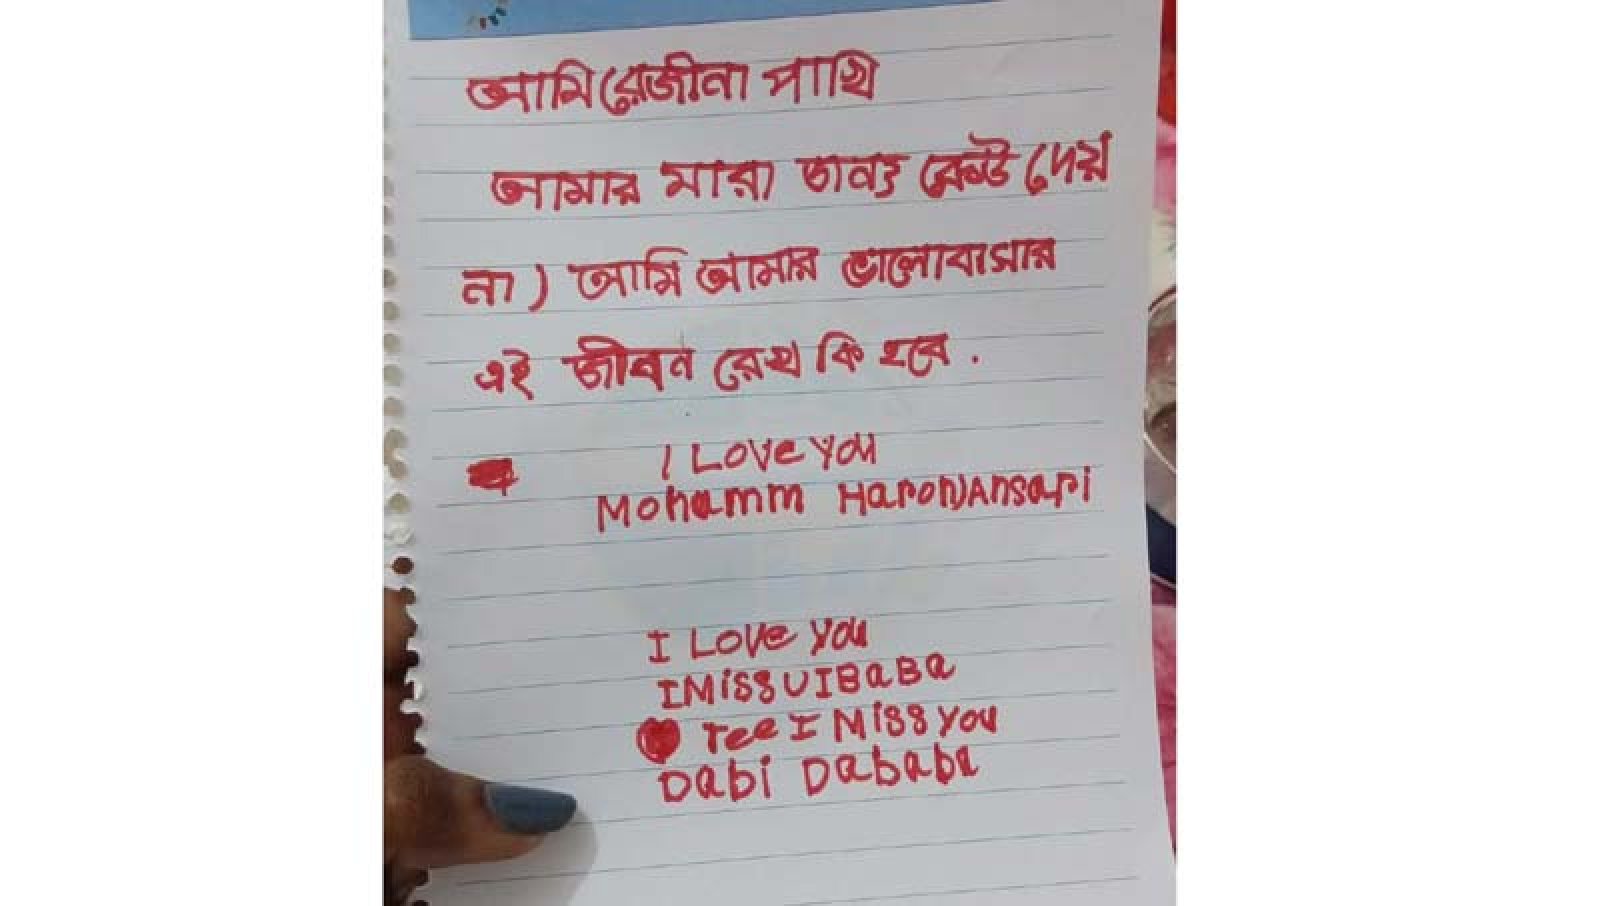 আমি রেজীনা পাখি
আমার মারা জান্য কেউ দেয়
না) আমি আমার ভালোবাসার
এই জীবন রেখ কি হবে.
I Love you
Mohamm HaronJAnsari
I Love you
IMiss UIBaBa
Tee I Miss you
Dabi Dababa